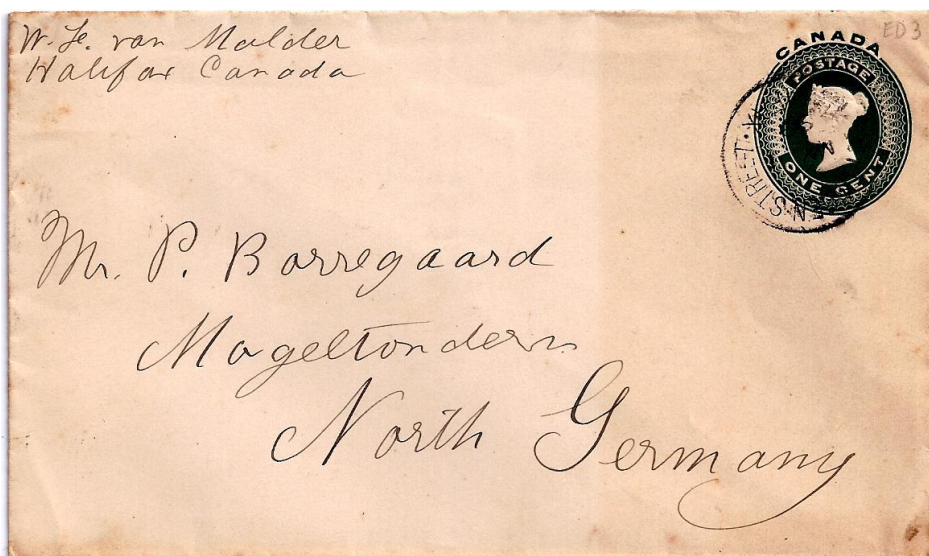 W. Le. van Malder
Halifax Canada
ED3
CANADA
POSTAGE
ONE CENT
EN STREET
Mr. P. Borregaard
Mogeltondern
North Germany